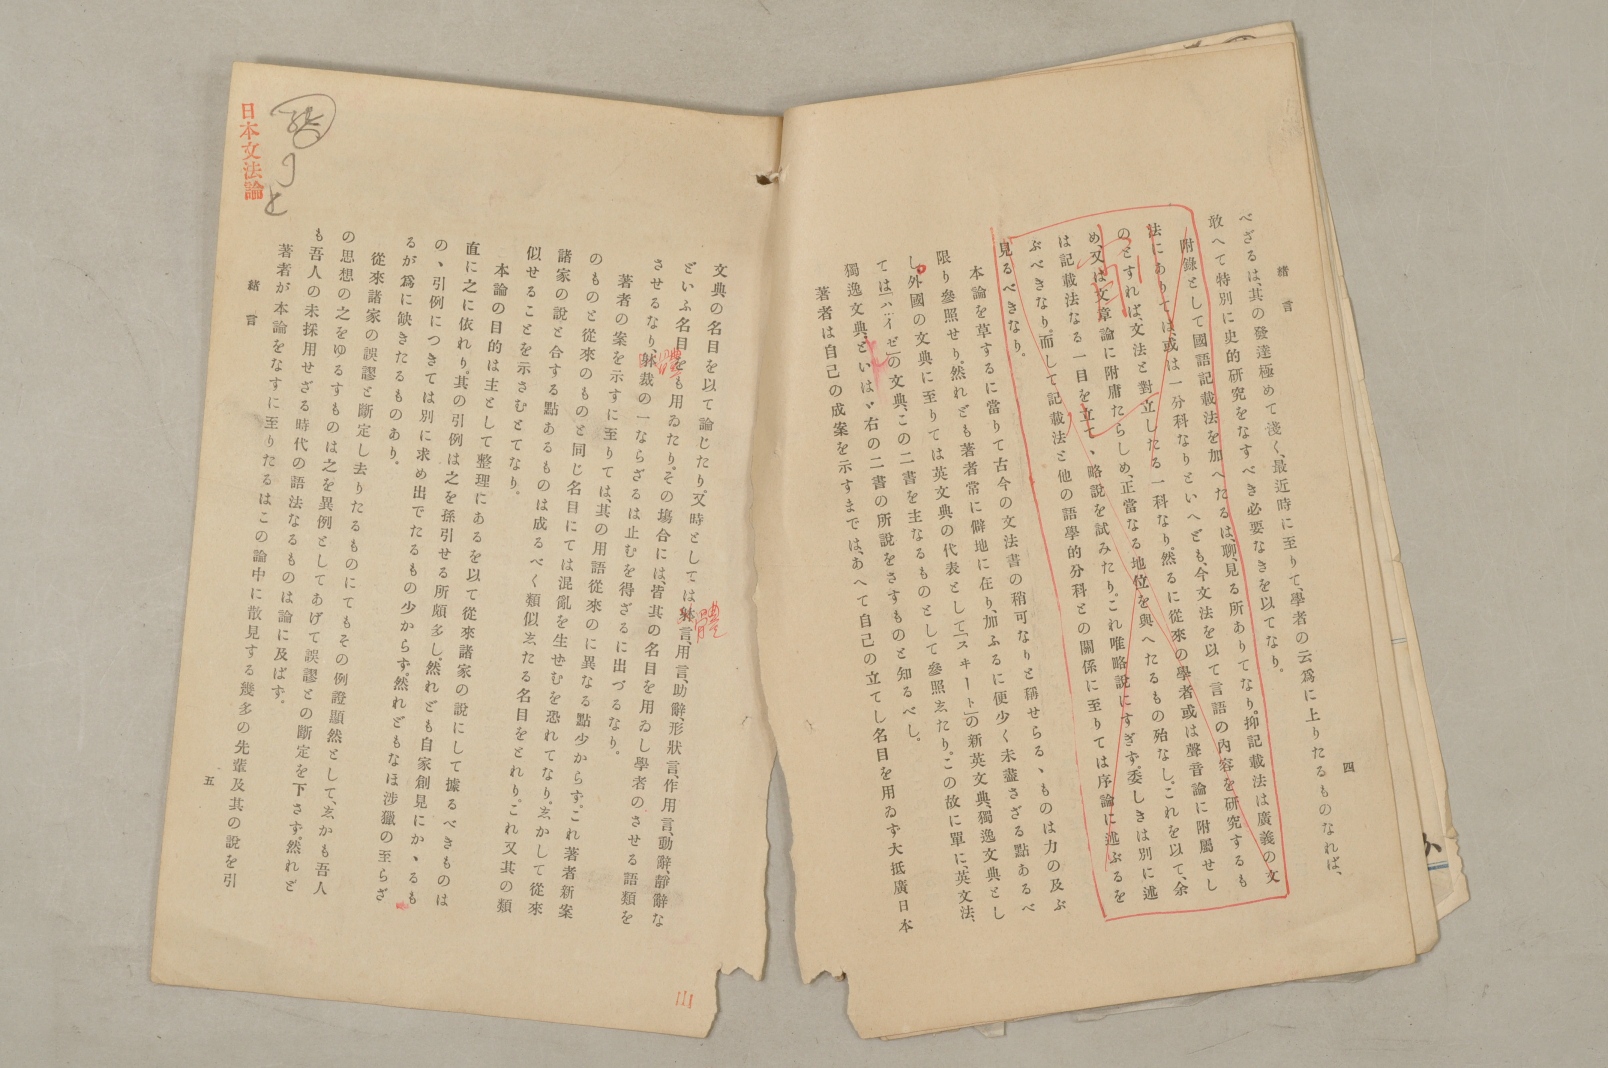 緒言
四
べざるは、其の發達極めて淺く、最近時に至りて學者の云爲に上りたるものなれば、
敢へて特別に史的研究をなすべき必要なきを以てなり。
附錄として國語記載法を加へたるは、聊、見る所ありてなり。抑記載法は廣義の文
法にありては、或は一分科なりといへども、今文法を以て言語の內容を硏究するも
のとすれば、文法と對立したる一科なり。然るに從來の學者或は聲音論に附屬せし
め、又は文章論に附庸たらしめ、正當なる地位を與へたるもの殆なし。これを以て、余
は記載法なる一目を立てゝ略說を試みたり。これ唯略說にすぎず。委しきは別に述
ぶべきなり。而して記載法と他の語學的分科との關係に至りては序論に述ぶるを
見るべきなり。
本論を草するに當りて古今の文法書の稍可なりと稱せらるゝものは力の及ぶ
限り參照せり。然れども著者常に僻地に在り、加ふるに便少く未盡さざる點あるべ
し。外國の文典に至りては英文典の代表として「スヰート」の新英文典、獨逸文典とし
ては「ハイゼ」の文典、この二書を主なるものとして參照志たり。この故に單に、英文法、
獨逸文典といはゞ右の二書の所說をさすものと知るべし。
著者は自己の成案を示すまでは、あへて自己の立てし名目を用ゐず大抵廣日本
文典の名目を以て論じたり。又時としては躰言、用言、助辭、形狀言、作用言、動辭、靜辭な
どいふ名目をも用ゐたり。その塲合には、皆其の名目を用ゐし學者のさせる語類を
させるなり。躰裁の一ならざるは止むを得ざるに出づるなり。
著者の案を示すに至りては、其の用語從來のに異なる點少からず。これ著者新案
のものと從來のものと同じ名目にては混亂を生せむを恐れてなり。志かして從來
諸家の說と合する點あるものは成るべく類似志たる名目をとれり。これ又其の類
似せることを示さむとてなり。
本論の目的は主として整理にあるを以て從來諸家の說にして據るべきものは
直に之に依れり。其の引例は之を孫引せる所頗多し。然れども自家創見にかゝるも
のゝ引例につきては別に求め出でたるもの少からず。然れどもなほ涉獵の至らざ
るが爲に缺きたるものあり。
從來諸家の誤謬と斷定し去りたるものにてもその例證顯然として、志かも吾人
の思想の之をゆるすものは之を異例としてあげて誤謬との斷定を下さず。然れど
も吾人の未採用せざる時代の語法なるものは論に及ばず。
著者が本論をなすに至りたるはこの論中に散見する幾多の先輩及其の說を引
緒言
五
日本文法論